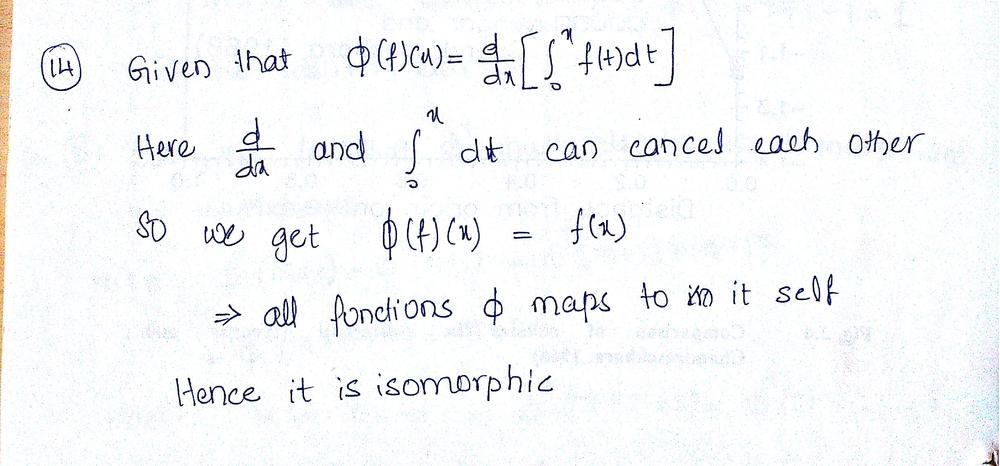 (14) Given that ϕ(f)(x) = d/dx [∫₀ˣ f(t)dt]
Here d/dx and ∫₀ˣ dt can cancel each other
So we get ϕ(f)(x) = f(x)
⇒ all functions ϕ maps to it self
Hence it is isomorphic